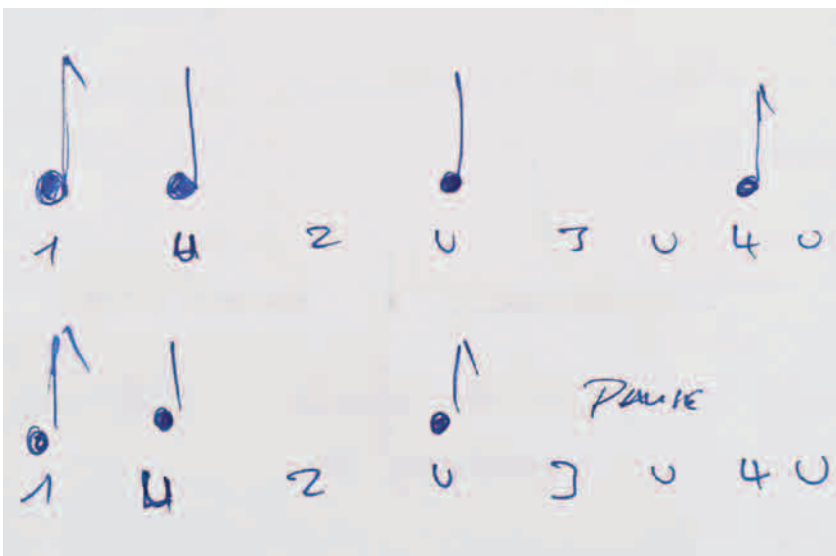 1 U 2 U 3 U 4 U
PAUSE
1 U 2 U 3 U 4 U